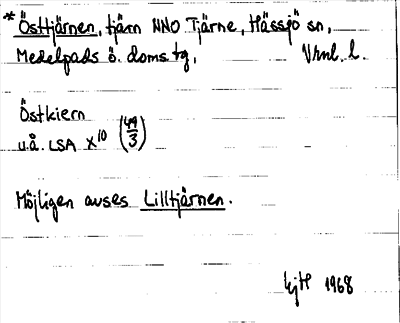 * Östtjärnen, tjärn NNO Tjärne, Hässjö sn,
Medelpads ö. doms tg, Vrnl. l.
Östkiern
u.å. LSA X10 (49/3)
Möjligen avses Lilltjärnen.
1968